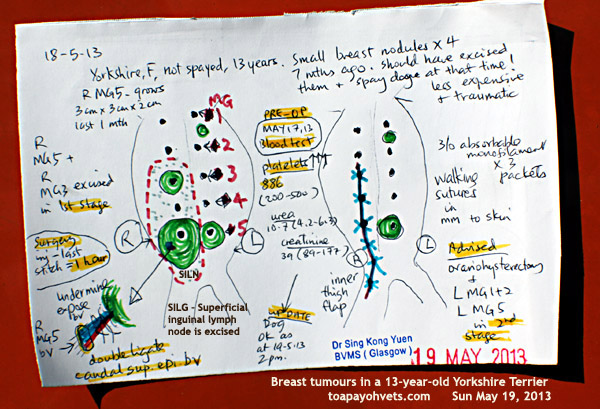 18-5-13
Yorkshire, F, not spayed, 13 years. Small breast nodules x 4
7 mths ago. Should have excised
them + spay dog at that time!
less expensive
+ traumatic
R MG5 - grows
3 cm x 3 cm x 2 cm
last 1 mth
MG
1
2
3
4
5
R
MG5 +
R
MG3 excised
in 1st stage
Surgery
in - last
stitch = 1 hour
R
L
SILN
undermine
expose
bv
R
MG5
bv
double ligate
caudal sup. epi bv
SILG - Superficial
inguinal lymph
node is excised
PRE-OP
MAY 17, 13
Blood test
platelets ↑↑↑
886
(200-500)
urea
10.7 (4.2-6.3)
creatinine
39 (89-177)
UPDATE
Dog
OK as
at 19-5-13
2 pm.
inner
thigh
flap
R
L
3/0 absorbable
monofilament
x 3
packets
walking
sutures
in
mm to skin
Advised
ovariohysterectomy
+
L MG1+2
L MG5
in 2nd
stage
Dr Sing Kong Yuen
BVMS (Glasgow)
19 MAY 2013
Breast tumours in a 13-year-old Yorkshire Terrier
toapayohvets.com Sun May 19, 2013